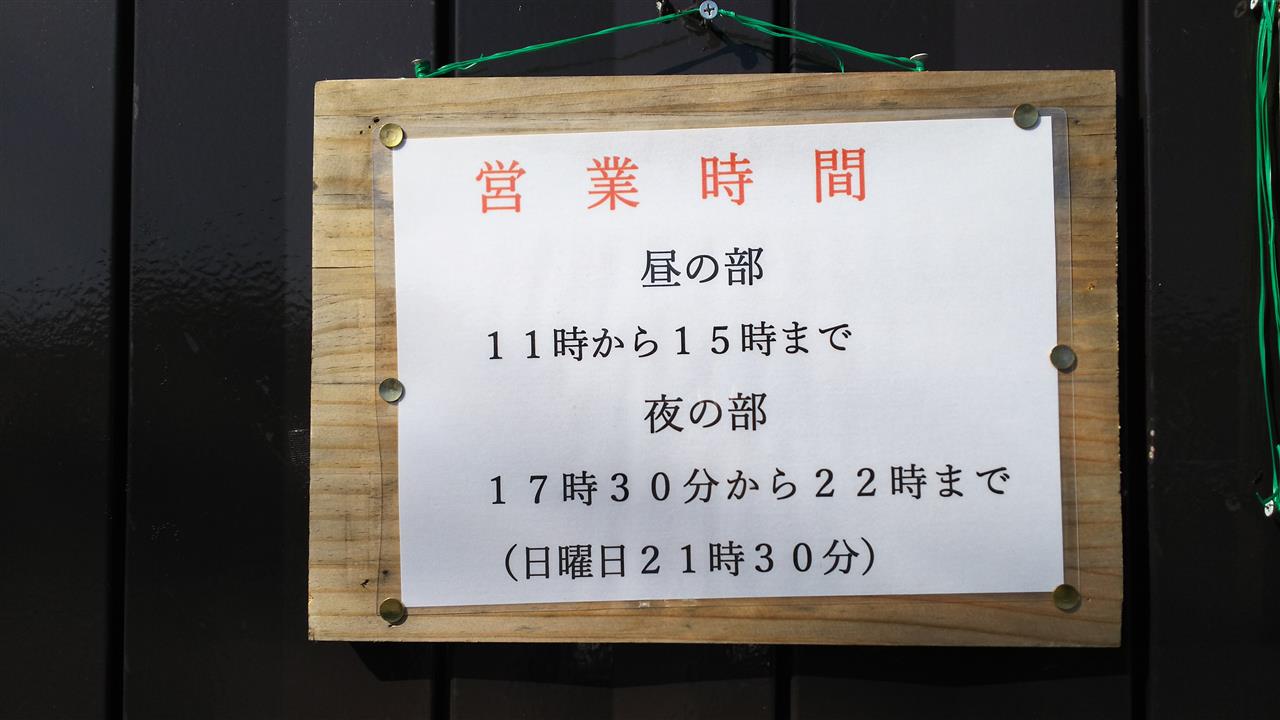 営業時間
昼の部
１１時から１５時まで
夜の部
１７時３０分から２２時まで
（日曜日２１時３０分）